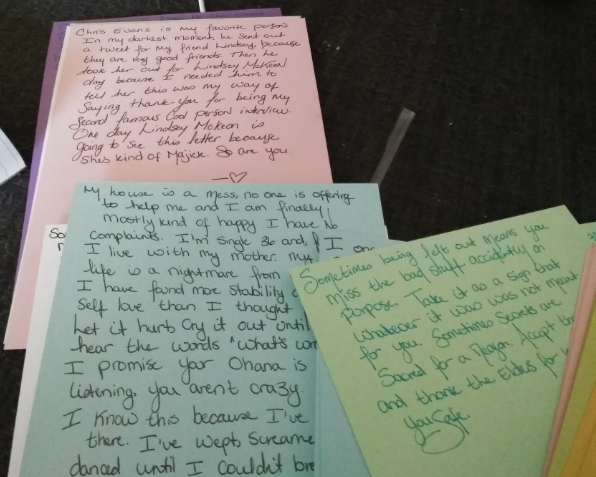 Chris Evans is my favorite person
In my darkest moment, he sent out
a tweet for my friend Lindsey, because
they are very good friends Then he
took her out for Lindsey McKeon
day because I needed him to
tell her this was my way of
Saying thank you for being my
Second famous Cool person interview
One day Lindsey McKeon is
going to see this letter because
She's kind of Majick So are you
My house is a mess, no one is offering
to help me and I am finally
mostly kind of happy I have no
complaints. I'm Single 36 and,
I live with my mother. my
life is a nightmare from
I have found more stability
Self love than I thought
Let it hurt Cry it out until
hear the words "What's
I promise your Ohana is
listening. you arent crazy.
I Know this because I've
there. I've wept, Screame
danced until I couldn't bre
So
I
Sometimes being left out means you
miss the bad stuff accidently on
purpose. Take it as a sign that
whatever it was was not meant
for you. Sometimes Secrets are
Sacred for a Reason. Accept
and thank the Elders for
you Safe.